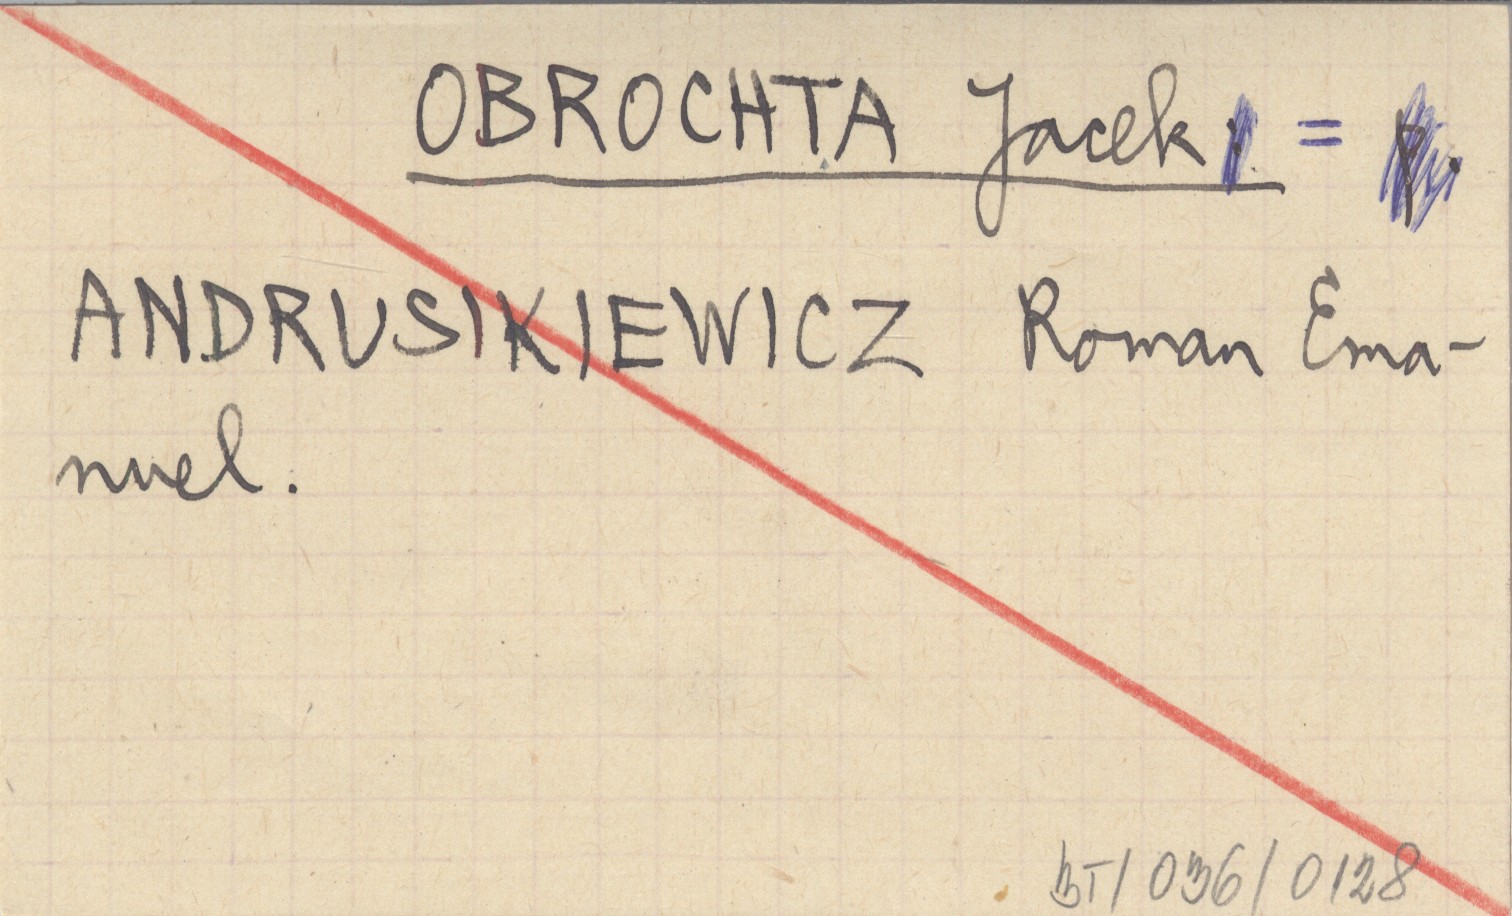 OBROCHTA Jacek =
ANDRUSIKIEWICZ Roman Ema-
nuel.
BT/036/0128